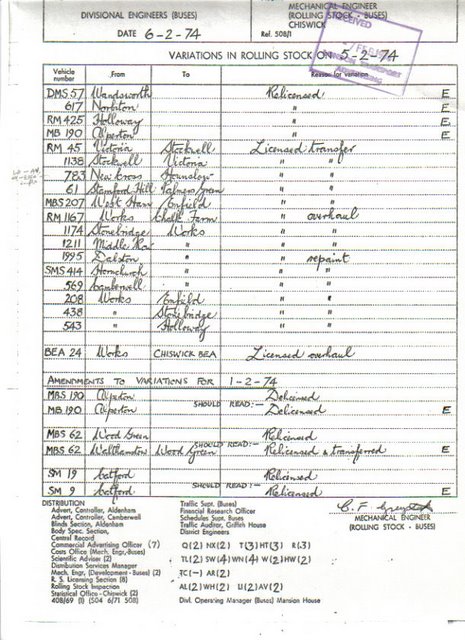 DIVISIONAL ENGINEERS (BUSES)
MECHANICAL ENGINEER
(ROLLING STOCK - BUSES)
CHISWICK
DATE 6-2-74
Ref. 508/1
RECEIVED
VARIATIONS IN ROLLING STOCK ON 5-2-74
Vehicle number From To Reason for variation
DMS 57 Wandsworth Relicensed E
617 Norbiton " E
RM 425 Holloway " E
MB 190 Alperton " E
RM 45 Victoria Stockwell Licensed transfer
1138 Stockwell Victoria " "
783 New Cross Hounslow " "
61 Stamford Hill Palmers Green " "
MBS 207 West Ham Enfield " "
RM 1167 Works Chalk Farm " overhaul
1174 Stonebridge Works " "
1211 Middle Row " " "
1995 Dalston " " repaint
SMS 414 Hornchurch " " "
569 Camberwell " " "
208 Works Enfield " "
438 " Stonebridge " "
543 " Holloway " "
BEA 24 Works CHISWICK BEA Licensed overhaul
AMENDMENTS TO VARIATIONS FOR 1-2-74
MBS 190 Alperton Delicensed
SHOULD READ:-
MB 190 Alperton Delicensed E
MBS 62 Wood Green Relicensed
SHOULD READ:-
MBS 62 Walthamstow Wood Green Relicensed & transferred E
SM 19 Catford Relicensed
SHOULD READ:-
SM 9 Catford Relicensed E
DISTRIBUTION
Advert. Controller, Aldenham
Advert. Controller, Camberwell
Blinds Section, Aldenham
Body Spec. Section,
Central Record
Commercial Advertising Officer (7)
Costs Office (Mech. Engr.-Buses)
Scientific Adviser (2)
Distribution Services Manager
Mech. Engr. (Development - Buses) (2)
R. S. Licensing Section (8)
Rolling Stock Inspection
Statistical Office - Chiswick (2)
408/69 (1) (504 6/71 508)
Traffic Supt. (Buses)
Financial Research Officer
Schedules Supt. Buses
Traffic Auditor, Griffith House
District Engineers
Q(2) NX(2) T(3) HT(3) R(3)
TL(2) SW(4) WN(4) W(2) HW(2)
TC(-) AR(2)
AL(2) WH(2) U(2) AV(2)
Divl. Operating Manager (Buses) Mansion House
MECHANICAL ENGINEER
(ROLLING STOCK - BUSES)